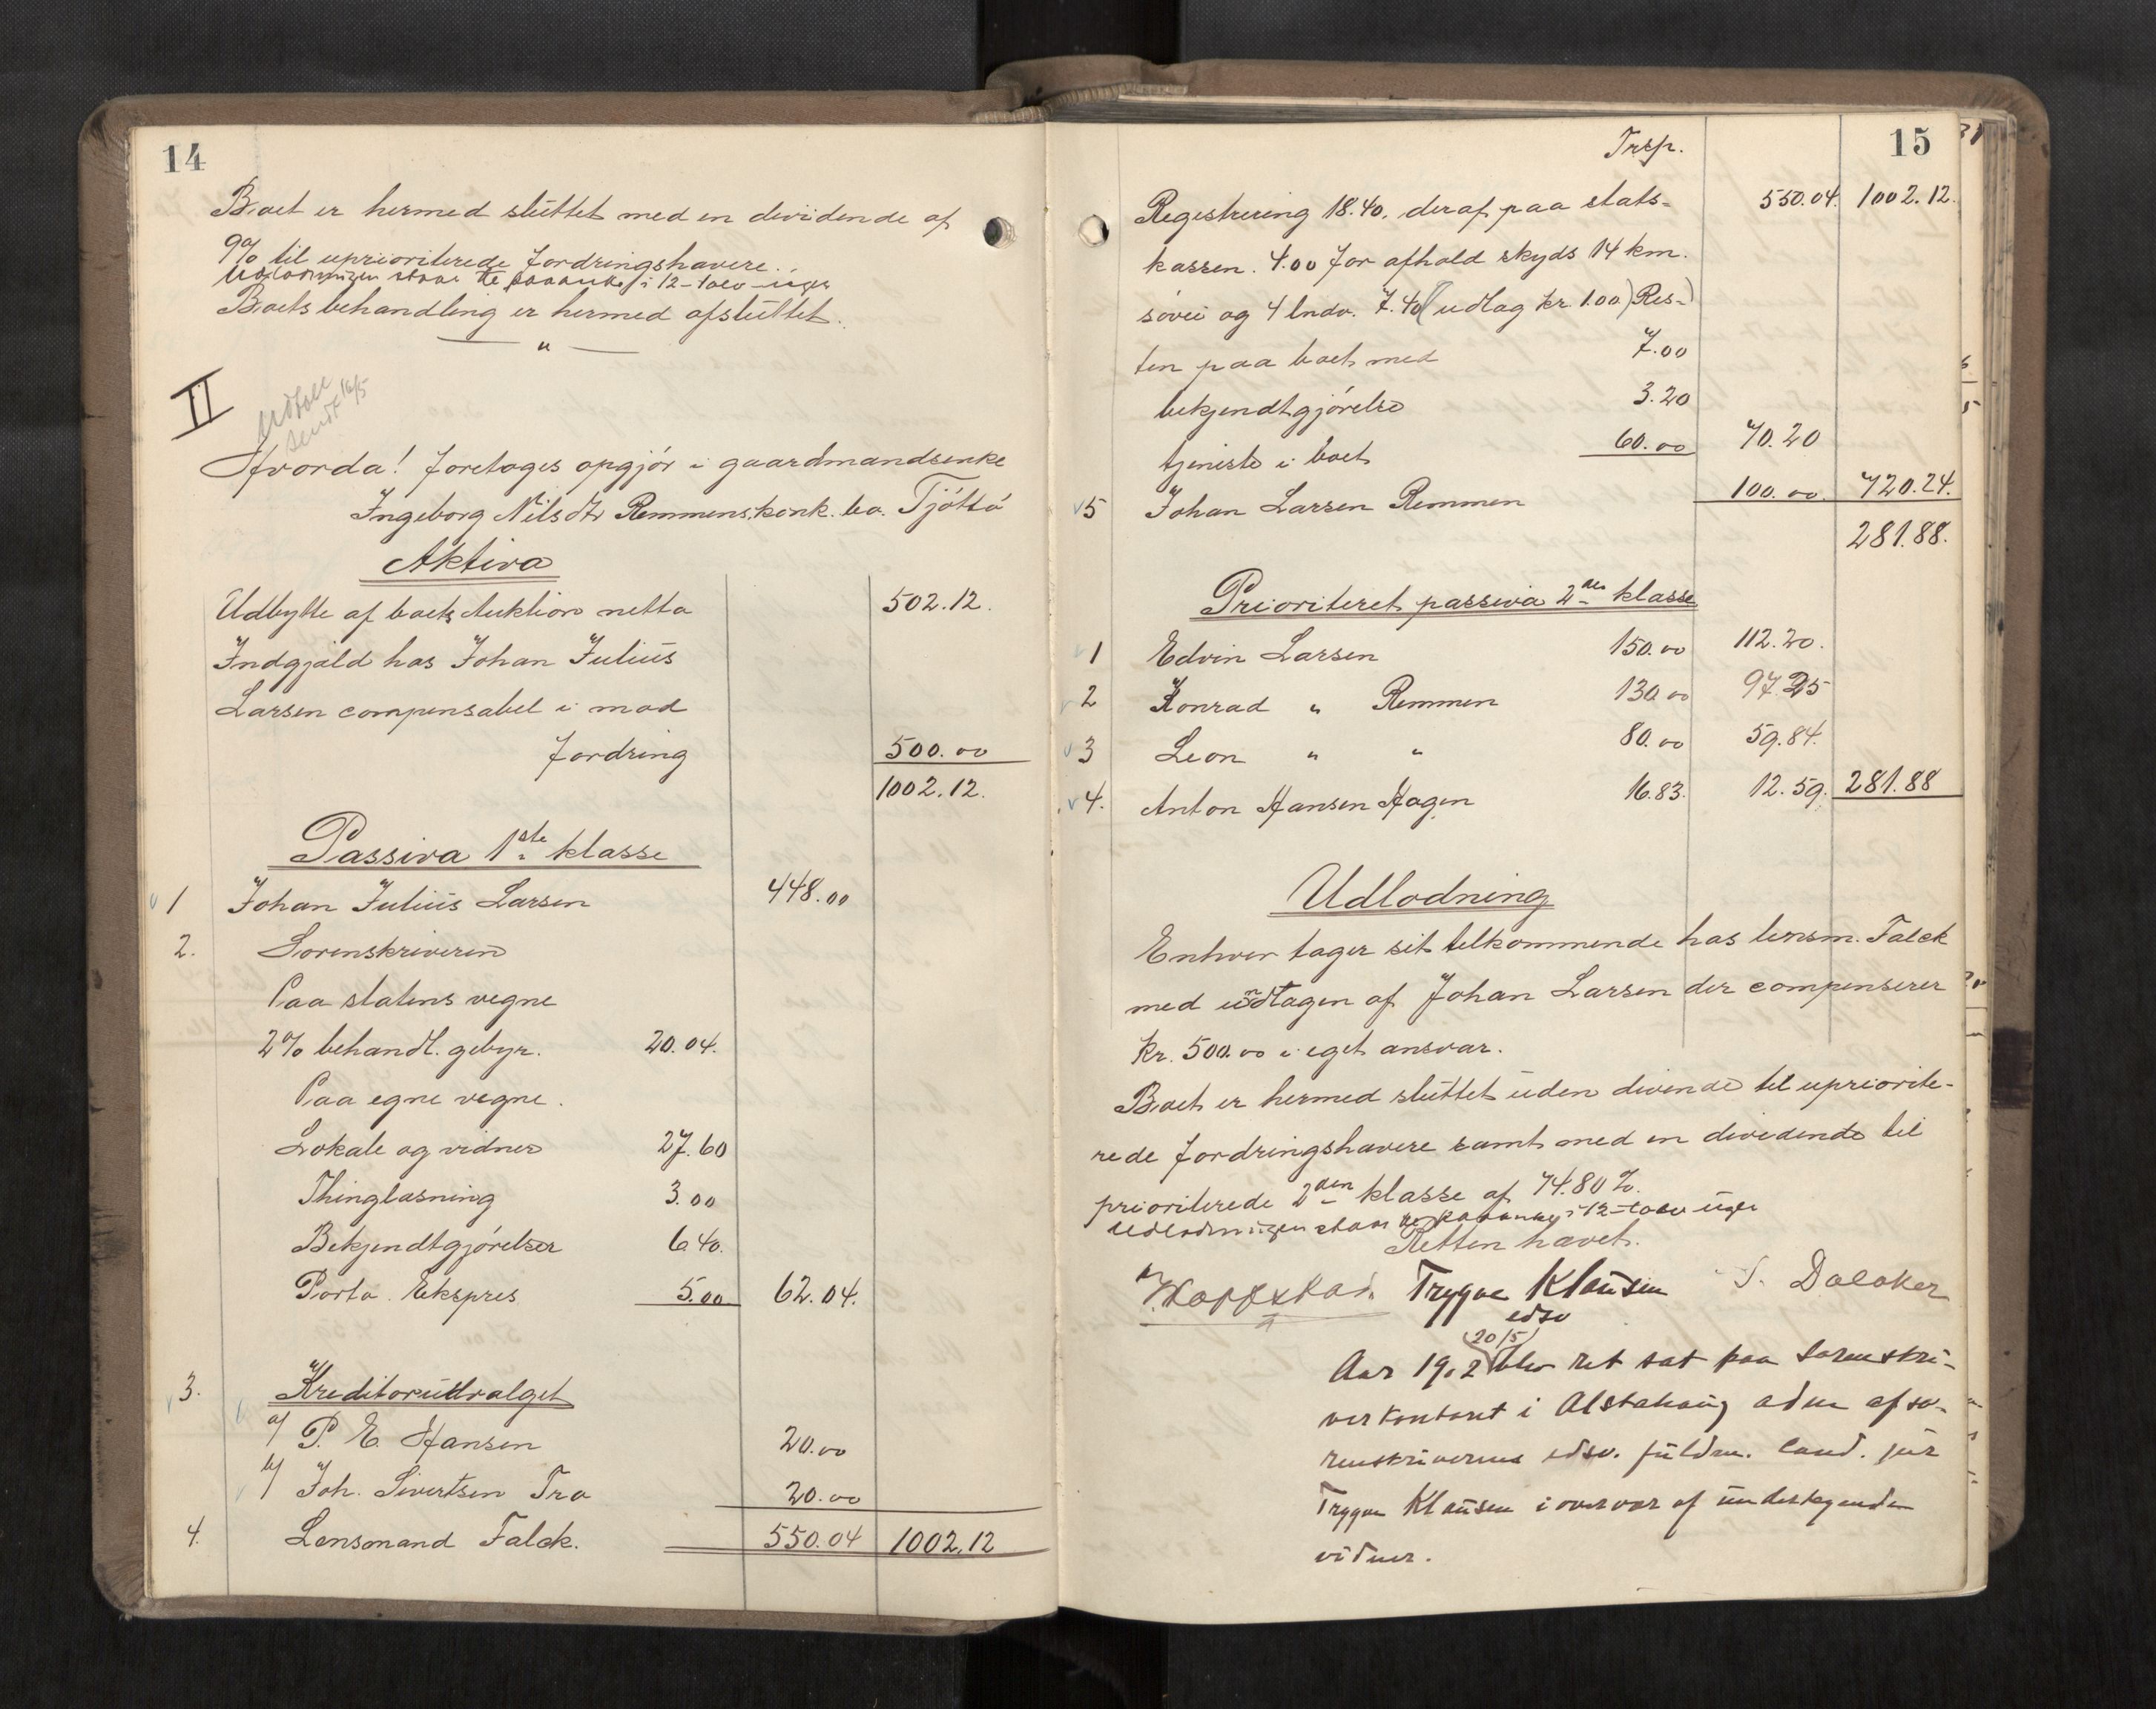 14
Boet er hermed sluttet med en dividende af
9% til uprioriterede fordringshavere.
Udlodningen staar til paaanke i 12 - tolv - uger
Boets behandling er hermed afsluttet.
"
II
Udtog
sendt 16/5
Hvorda! foretoges opgjör i gaardmandsenke
Ingeborg Nilsdtr Remmens konk. bo. Tjöttö
Aktiva
Udbytte af boets Auktion netto 502.12.
Indgjæld hos Johan Julius
Larsen compensabel i mod
fordring 500.00
1002.12.
Passiva 1ste klasse
1 Johan Julius Larsen 448.00
2. Sorenskriveren
Paa statens vegne
2% behandl. gebyr. 20.04.
Paa egne vegne.
Lokale og vidner 27.60
Thinglæsning 3.00
Bekjendtgjörelser 6.40.
Porto Ekspres 5.00 62.04.
3. Kreditorudvalget
a/ P. E. Hansen 20.00
b/ Joh. Sivertsen Tro 20.00
4. Lensmand Falck. 550.04 1002.12
15
Trsp.
Registrering 18.40. deraf paa stats- 550.04. 1002.12.
kassen. 4.00 for ophold skyds 14 km.
sövei og 4 lndv. 7.40 (udlæg kr. 1.00) Res-
ten paa boet med 7.00
bekjendtgjörelse 3.20
tjeneste i boet 60.00 70.20
5 Johan Larsen Remmen 100.00. 720.24.
281.88.
Prioriteret passiva 2den klasse
1 Edvin Larsen 150.00 112.20.
2 Konrad " Remmen 130.00 97.25
3 Leon " " 80.00 59.84.
4. Anton Hansen Hagen 16.83. 12.59. 281.88
Udlodning
Enhver tager sit tilkommende hos lensm. Falck
med undtagen af Johan Larsen der compenserer
kr. 500.00 i eget ansvar.
Boet er hermed sluttet uden divende til upriorite-
rede fordringshavere samt med en dividende til
prioriterede 2den klasse af 74.80%.
Udlodningen staar til paaanke i 12 - tolv uger
Retten hævet.
Trygve Klausen
edsv
Aar 1912 (20/5) blev ret sat paa sorenskri-
verkontoret i Alstahaug adm af so-
renskriverens edsv. fuldm. Cand. jur
Trygve Klausen i overvær af undertegnede
vidner.